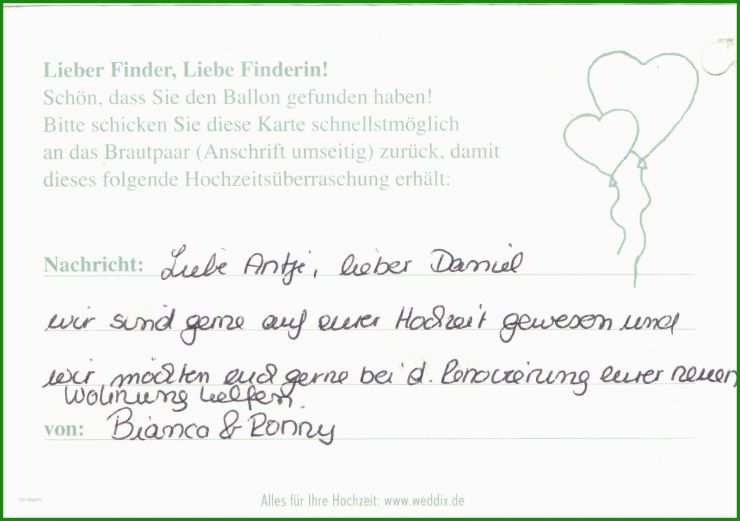 Lieber Finder, Liebe Finderin!
Schön, dass Sie den Ballon gefunden haben!
Bitte schicken Sie diese Karte schnellstmöglich
an das Brautpaar (Anschrift umseitig) zurück, damit
dieses folgende Hochzeitsüberraschung erhält:
Nachricht: Liebe Antje, lieber Daniel
wir sind gerne auf eurer Hochzeit gewesen und
wir möchten euch gerne bei d. Renovierung eurer neuen
Wohnung helfen.
von: Bianca & Ronny
Alles für Ihre Hochzeit: www.weddix.de